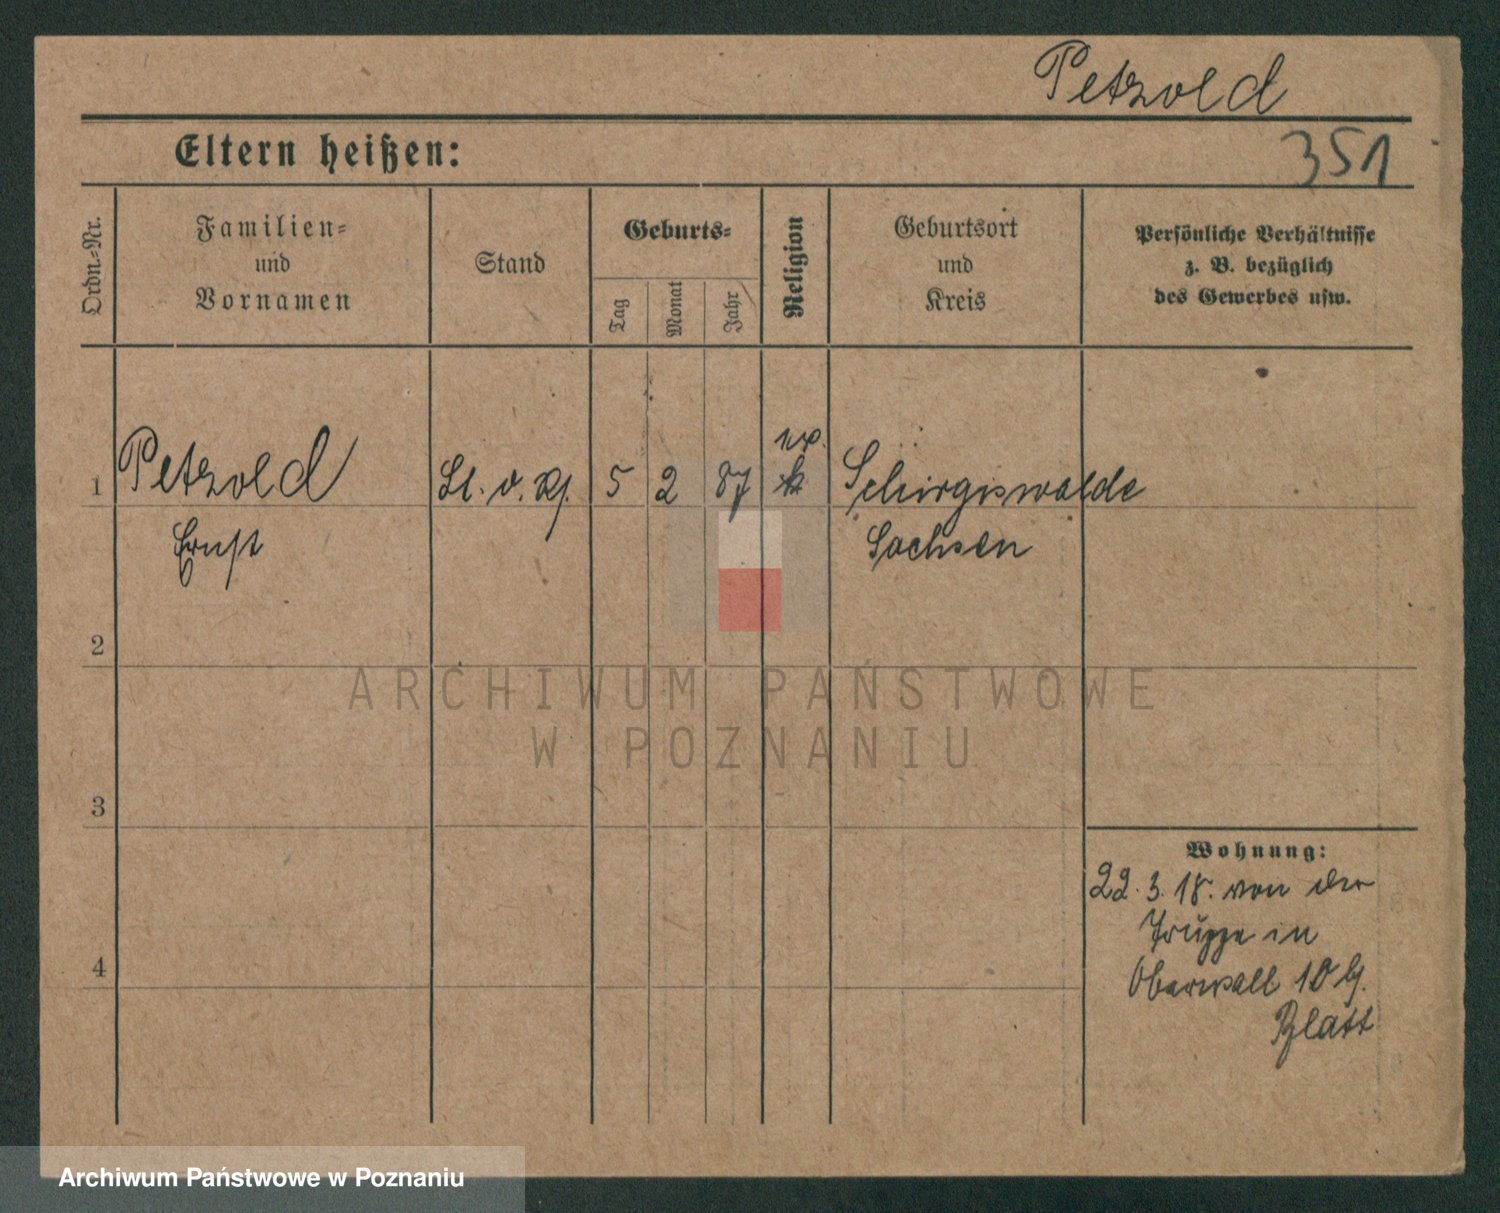 Petzold
Eltern heißen:
351
Ordn.-Nr.
Familien-
und
Vornamen
Stand
Geburts-
Tag
Monat
Jahr
Religion
Geburtsort
und
Kreis
Persönliche Verhältnisse
z. B. bezüglich
des Gewerbes usw.
1 Petzold Lt. d. R. 5 2 87 k Schirgiswalde
Ernst Sachsen
2
3
4
Wohnung:
22. 3. 18. von der
Truppe in
Oberwall 10 b.
Blatt
ARCHIWUM PAŃSTWOWE
W POZNANIU
Archiwum Państwowe w Poznaniu